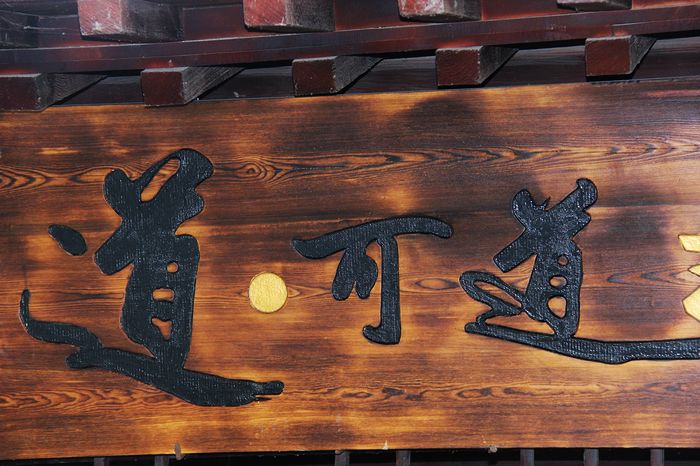 道可道